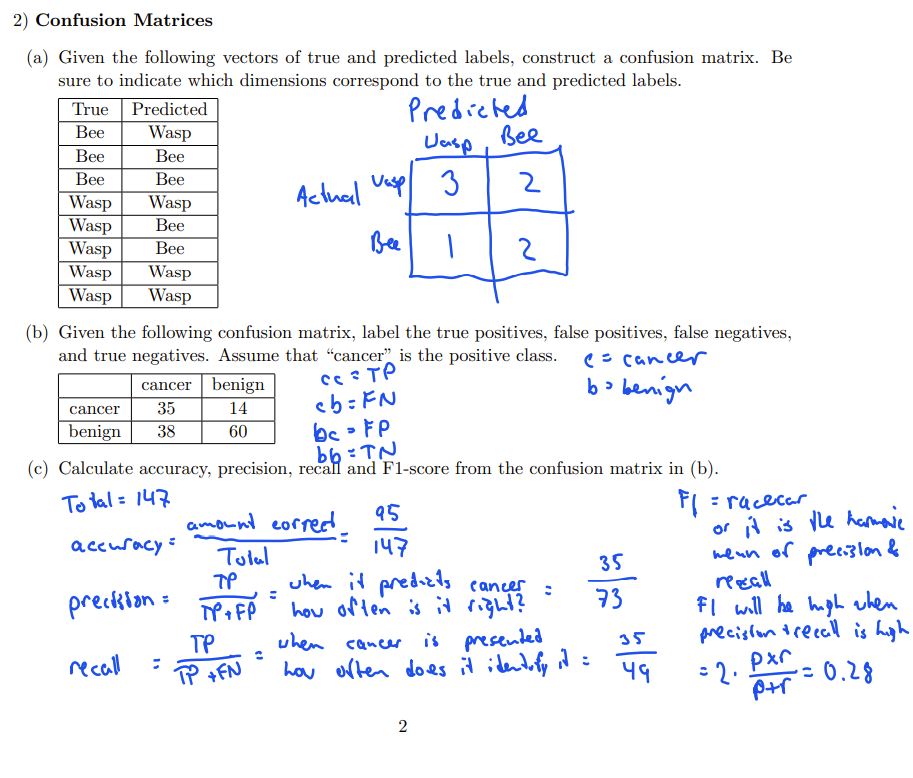 2) Confusion Matrices
(a) Given the following vectors of true and predicted labels, construct a confusion matrix. Be
sure to indicate which dimensions correspond to the true and predicted labels.
True Predicted
Bee Wasp
Bee Bee
Bee Bee
Wasp Wasp
Wasp Bee
Wasp Bee
Wasp Wasp
Wasp Wasp
Predicted
Wasp Bee
Actual Wasp 3 2
Bee 1 2
(b) Given the following confusion matrix, label the true positives, false positives, false negatives,
and true negatives. Assume that “cancer” is the positive class.
cancer benign
cancer 35 14
benign 38 60
cc = TP
cb = FN
bc = FP
bb = TN
c = cancer
b = benign
(c) Calculate accuracy, precision, recall and F1-score from the confusion matrix in (b).
Total = 147
accuracy = amount correct / Total = 95 / 147
precision = TP / TP+FP = when it predicts cancer how often is it right? = 35 / 73
recall = TP / TP+FN = when cancer is presented how often does it identify it = 35 / 49
F1 = racecar
or it is the harmonic
mean of precision &
recall
F1 will be high when
precision + recall is high
= 2 · pxr / p+r = 0.28
2